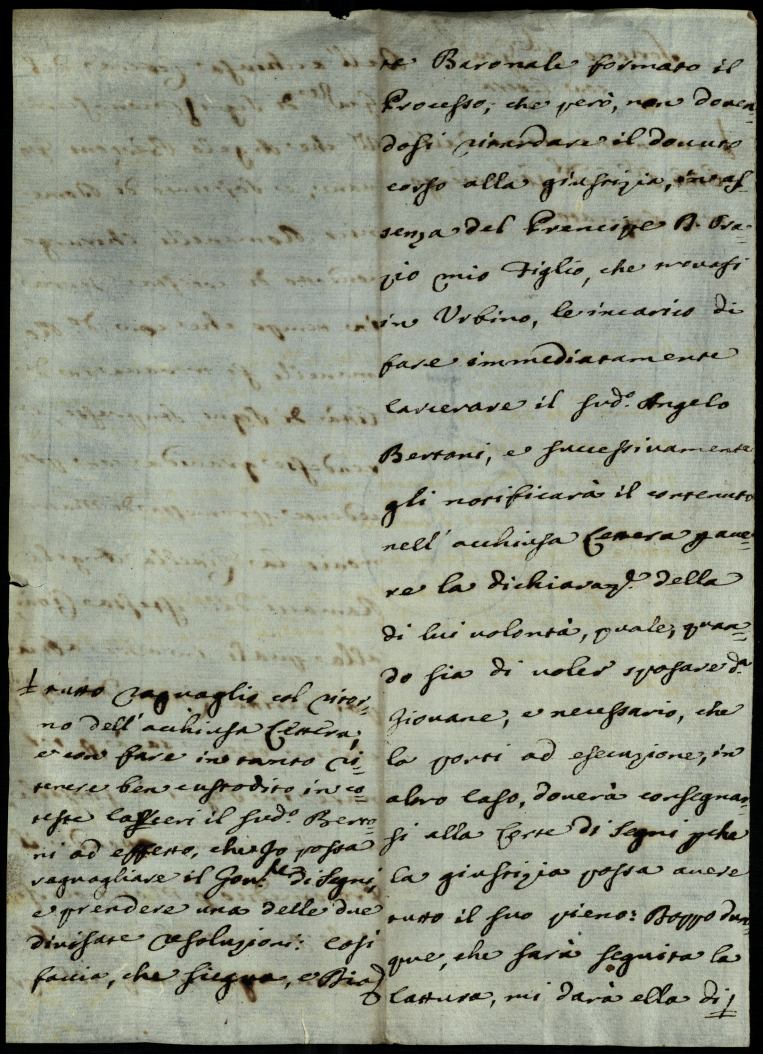 te Baronale formato il
Processo; che però, non doven-
dosi ritardare il dovuto
corso alla giustizia, in as-
senza del Prencipe D. Ora-
zio mio Figlio, che trovasi
in Urbino, le incarico di
fare immediatamente
carcerare il sud.º Angelo
Bertoni, e successivamente
gli notificarà il contenuto
nell'acchiusa Lettera p ave-
re la dichiaraz.e della
di lui volontà, quale, quan-
do sia di voler sposare d.a
Giovane, e necessario, che
la porti ad esecuzione, in
altro caso, doverà consegnar-
si alla Corte di Segni pche
la giustizia possa avere
tutto il suo pieno: Doppo dun-
que, che sarà seguita la
cattura, mi darà ella di ‡
‡ tutto raguaglio col ritor-
no dell'acchiusa Lettera,
e con fare in tanto ri-
tenere ben custodito in co-
teste Carceri il sud.º Berto-
ni ad effetto, che Io possa
raguagliare il Gov.re di Segni,
e prendere una delle due
divisate resoluzioni: Così
faccia, che siegua, e Dia